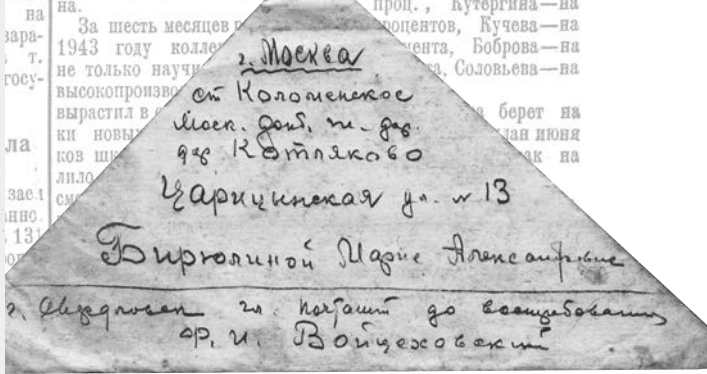 на.
За шесть месяцев
1943 году
не только научи
высокопроизво
вырастил в
ки новых
ков
лило
на
вара-
т.
госу-
ла
заел
131
проц., Кутергина—на
роцентов, Кучева—на
мента, Боброва—на
Соловьева—на
берет на
лан июня
ак на
г. Москва
ст Коломенское
Моск. Донб. ж. дор.
дер Котляково
Царицынская ул. № 13
Бирюлиной Марие Александровне
г. Свердловск гл. почтамт до востребования
Ф. И. Войцеховский